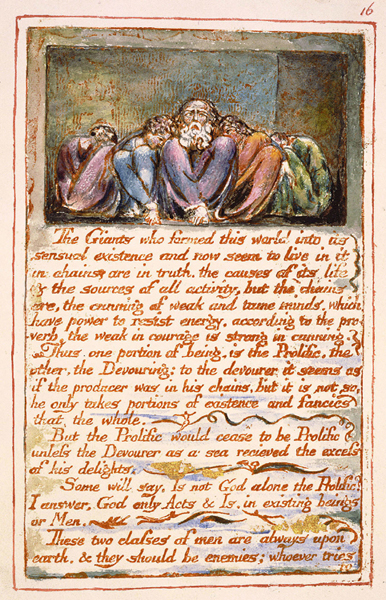 16
The Giants who formed this world into its
sensual existence and now seem to live in it
in chains, are in truth, the causes of its life
& the sources of all activity, but the chains
are, the cunning of weak and tame minds, which
have power to resist energy, according to the pro-
verb, the weak in courage is strong in cunning.
Thus one portion of being, is the Prolific, the
other, the Devouring: to the devourer it seems as
if the producer was in his chains, but it is not so,
he only takes portions of existence and fancies
that the whole.
But the Prolific would cease to be Prolific
unless the Devourer as a sea recieved the excess
of his delights.
Some will say, Is not God alone the Prolific?
I answer, God only Acts & Is, in existing beings
or Men.
These two classes of men are always upon
earth, & they should be enemies; whoever tries